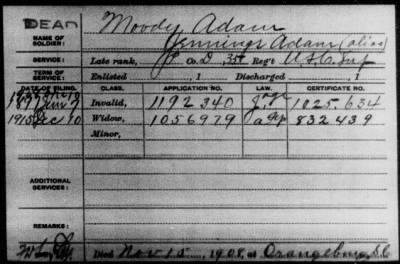 DEAD
Moody Adam
NAME OF SOLDIER: Jennings Adam (alias)
SERVICE: Late rank, Co. D, 35 Reg't U.S.C. Inf
TERM OF SERVICE: Enlisted , 1 Discharged , 1
DATE OF FILING. CLASS. APPLICATION NO. LAW. CERTIFICATE NO.
1897 Invalid, 1192340 1025-634
1915 Dec 10 Widow, 1056979 832439
Minor,
ADDITIONAL SERVICES:
REMARKS:
Died Nov 15, 1908, at Orangeburg, S.C